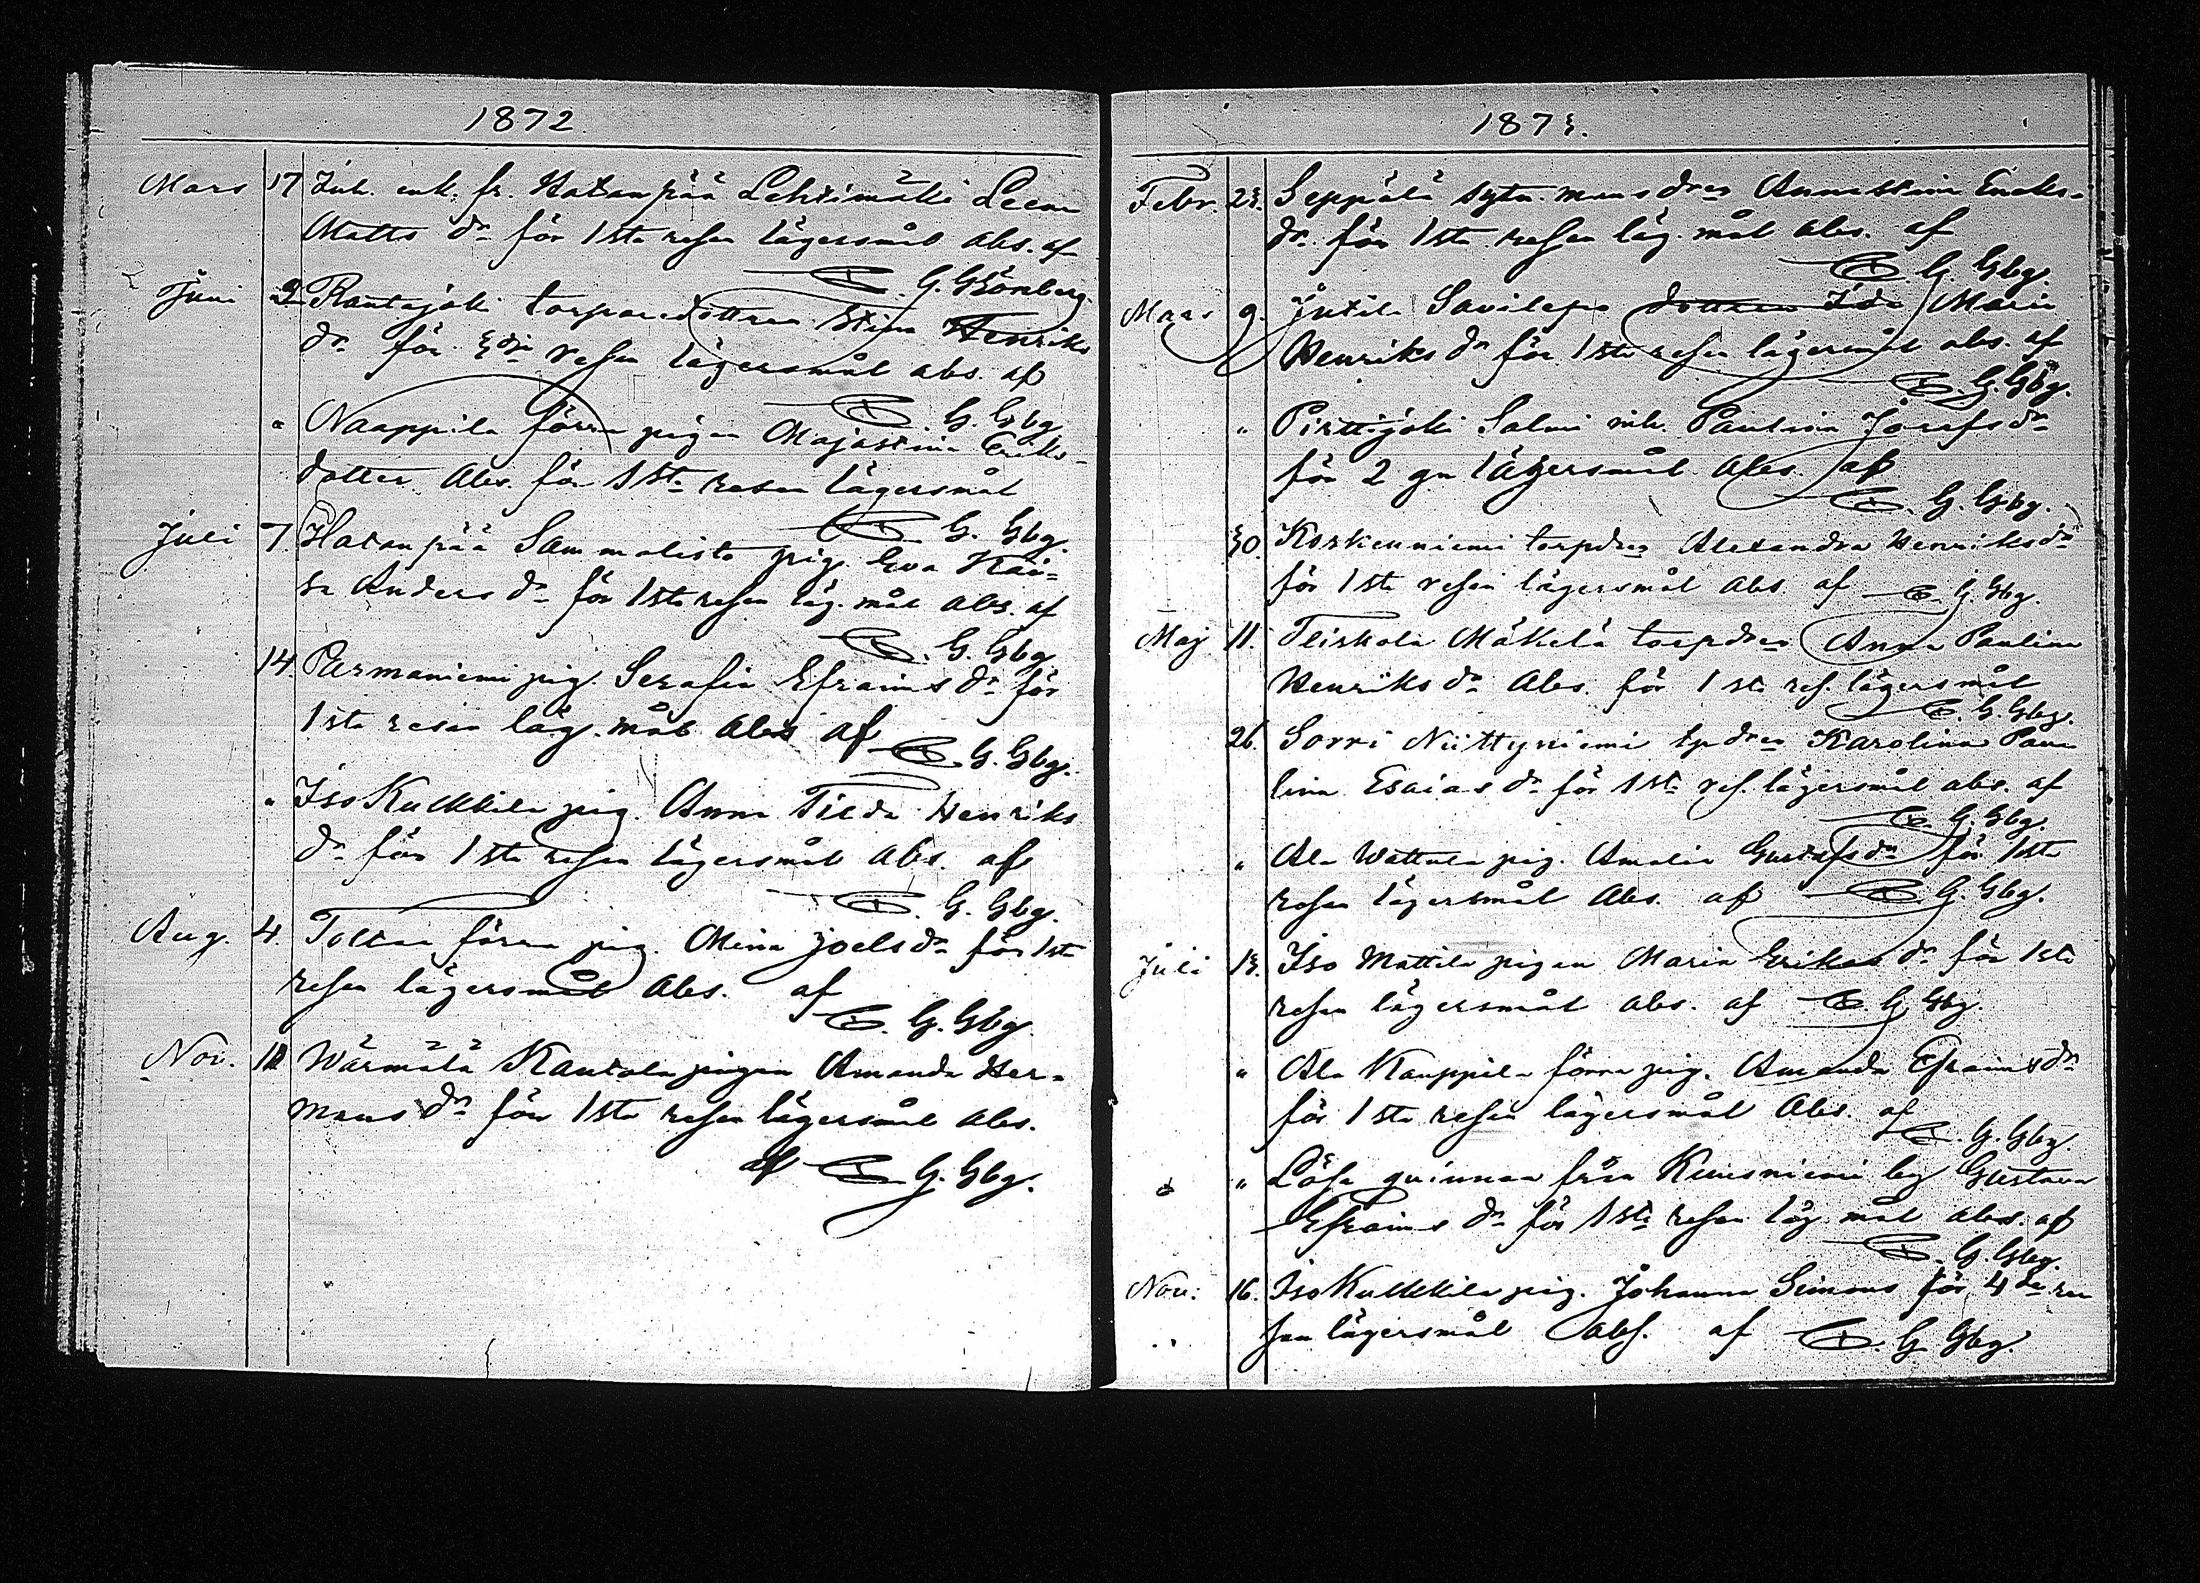 1872
Mars 17 Inh. enk. fr. Hatanpää Lehtimäki Leena
Matts dr för 1sta resan lägersmål abs. af
C. G. Grönberg
Juni 2 Rantajoki torparedottren Stina Henriks
dr för 3dje resan lägersmål abs. af
C. G. Gbg
" Naappila förra pigan Majastina Eriks-
dotter Abs. för 1sta resan lägersmål
C. G. Gbg.
Juli 7. Hatanpää Sammalisto pig. Eva Kai-
sa Anders dr för 1sta resan läg. mål abs. af
C. G. Gbg
14. Parmaniemi pig. Serafia Efraims dr för
1sta resan läg. mål abs af
C. G. Gbg.
" Iso Kulkkila pig. Anna Tilda Henriks
dr för 1sta resan lägersmål abs. af
C. G. Gbg.
Aug. 4. förra pig. Mina Joels dr för 1sta
resan lägersmål Abs. af
C. G. Gbg.
Nov. Wärmälä Kantola pigan Amanda Her-
mans dr för 1sta resan lägersmål abs.
af C. G. Gbg.
1873.
Febr. 23. Seppälä sytn. mans dren Annastina Eriks-
dr. för 1sta resan läg. mål abs. af
C. G. Gbg.
Mars 9. Jutila Savilepo dottren Ida Maria
Henriks dr för 1sta resan lägersmål abs. af
C. G. Gbg.
" Pirttijoki Salmi inh. Paulina Josefs dr
för 2 gn lägersmål Abs. af
C. G. Gbg.
30. Koskenniemi torpdren Alexandra Henriks dr
för 1sta resan lägersmål Abs. af C. G. Gbg.
Maj 11. Tliskola Mäkelä torpdren Anna Paulina
Henriks dr Abs. för 1sta res. lägersmål
C. G. Gbg.
26. Sorri Niittyniemi tpdren Karolina Pau-
lina Esaias dr för 1sta res. lägersmål abs. af
C. G. Gbg.
" Ala Wattula pig. Amalia Gustafs dr för 1sta
resan lägersmål Abs. af C. G. Gbg.
Juli 13. Iso Mattila pigan Maria Erikas dr för 1sta
resan lägersmål abs. af C. G. Gbg.
" Ala Kauppila förra pig. Amanda Efraims dr
för 1sta resan lägersmål Abs. af
C. G. Gbg.
" Lösa qvinnan från Kuusniemi by Gustava
Efraims dr för 1sta resan läg. mål abs. af
C. G. Gbg.
Nov. 16. Iso Kulkkila pig. Johanna Simons för 4de re-
san lägersmål abs. af C. G. Gbg.